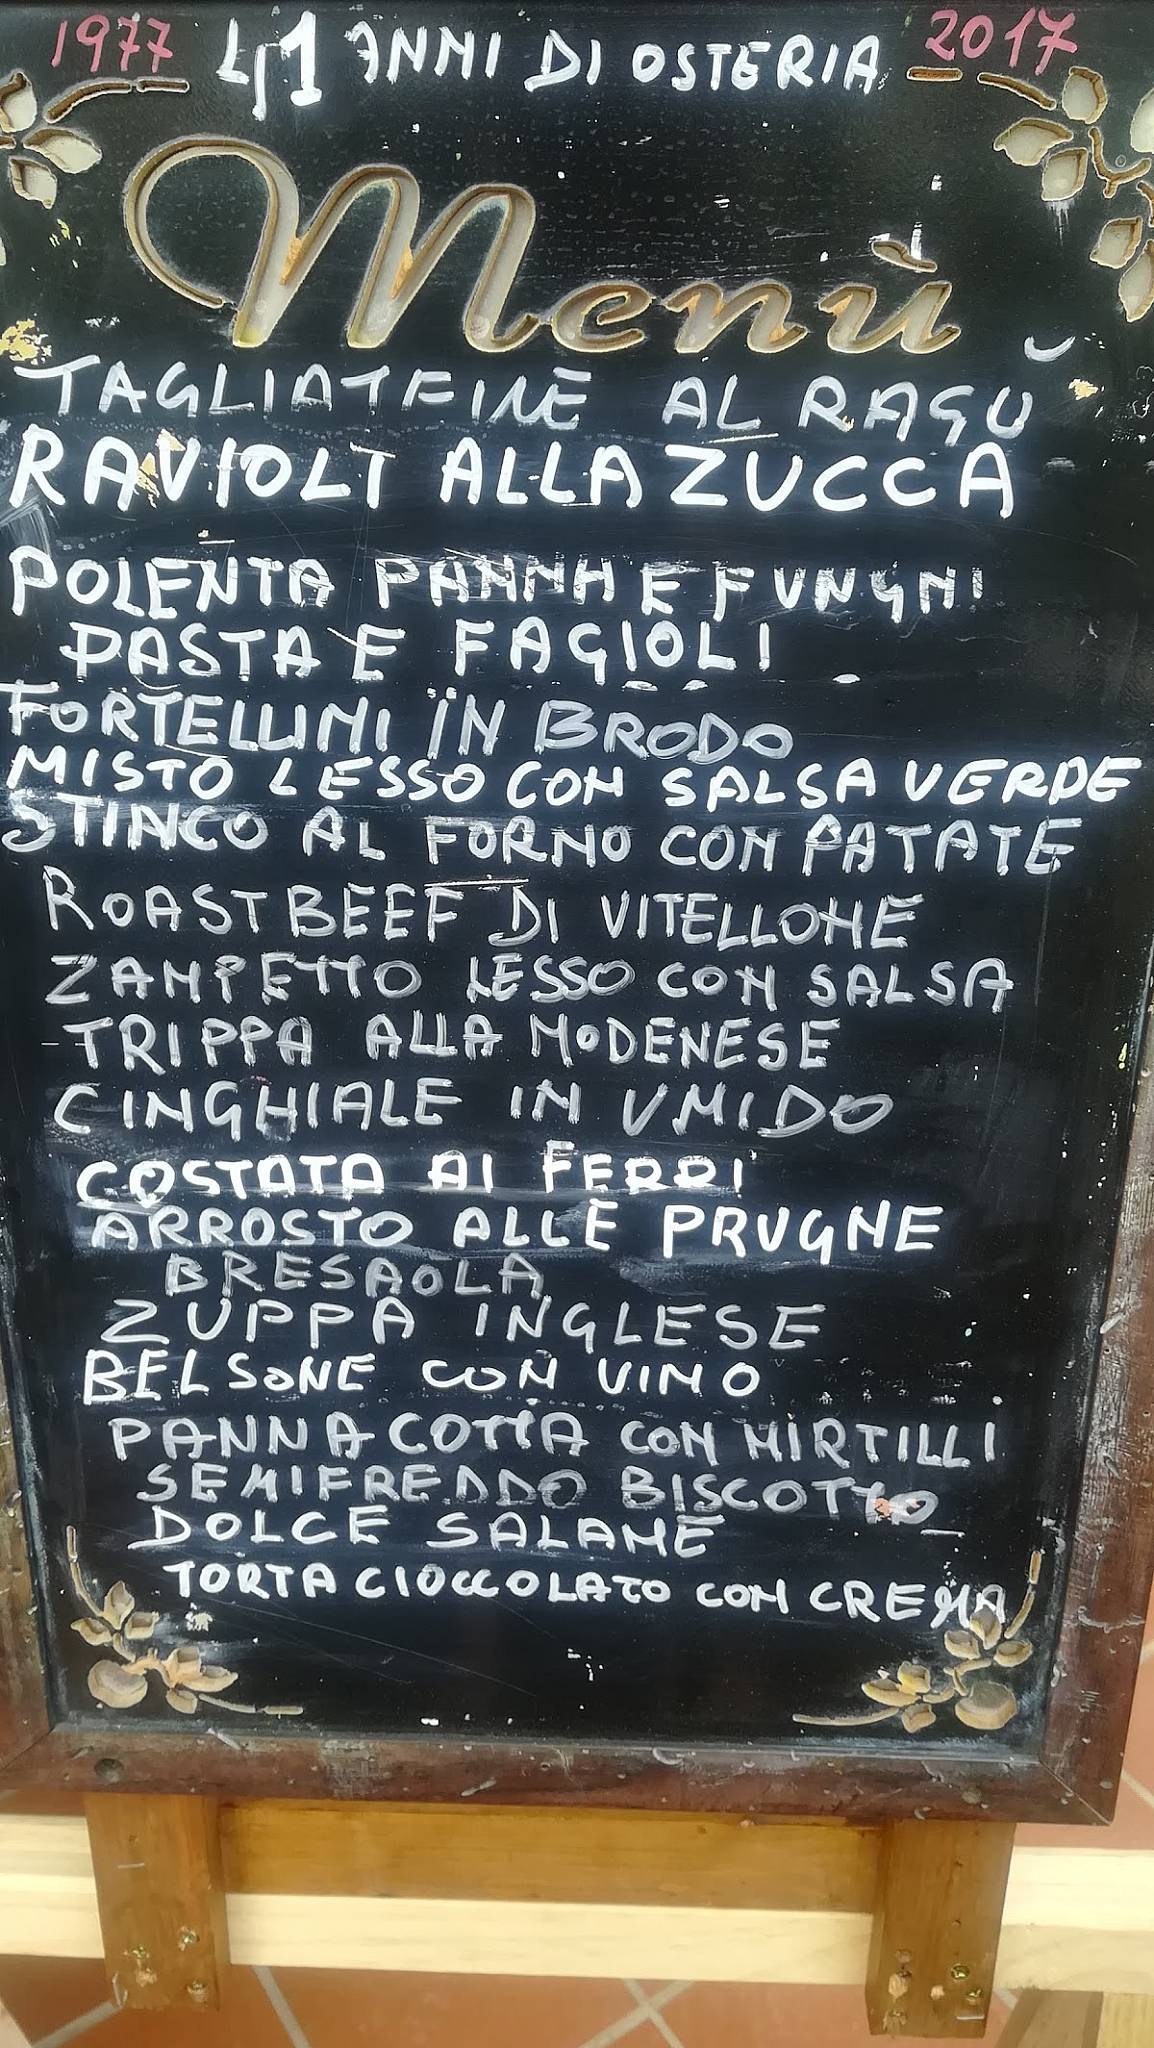 1977 41 ANNI DI OSTERIA 2017
Menù
TAGLIATELLE AL RAGÙ
RAVIOLI ALLA ZUCCA
POLENTA PANNA E FUNGHI
PASTA E FAGIOLI
TORTELLINI IN BRODO
MISTO LESSO CON SALSA VERDE
STINCO AL FORNO CON PATATE
ROAST BEEF DI VITELLONE
ZAMPETTO LESSO CON SALSA
TRIPPA ALLA MODENESE
CINGHIALE IN UMIDO
COSTATA AI FERRI
ARROSTO ALLE PRUGNE
BRESAOLA
ZUPPA INGLESE
BELSONE CON VINO
PANNA COTTA CON MIRTILLI
SEMIFREDDO BISCOTTO
DOLCE SALAME
TORTA CIOCCOLATO CON CREMA